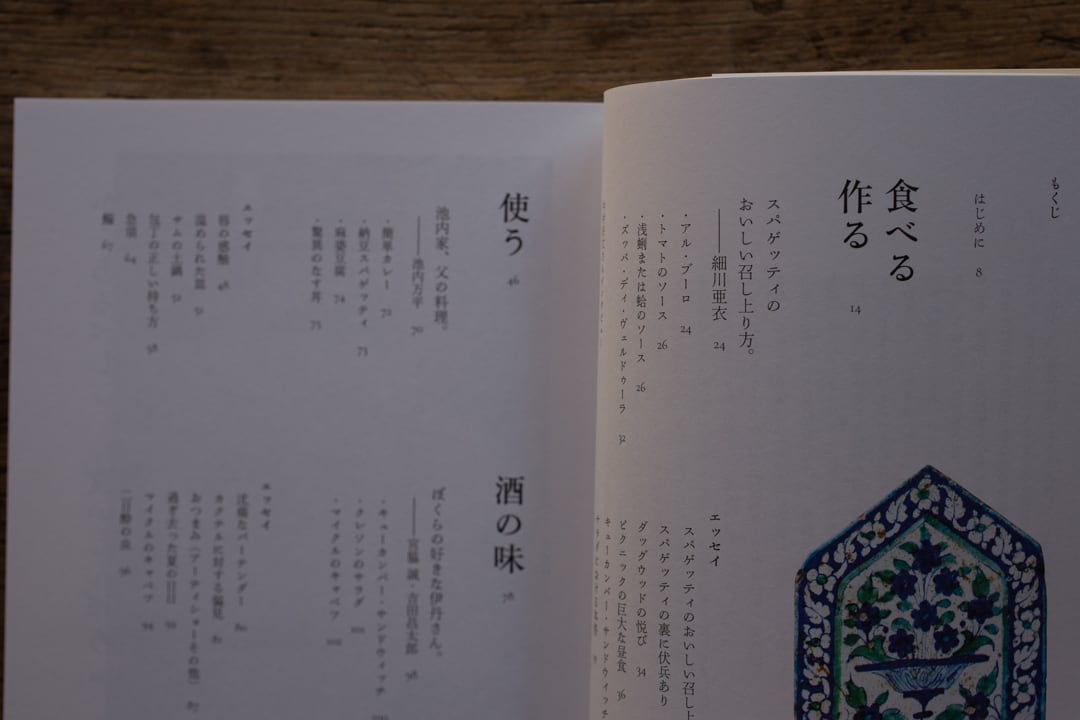 もくじ
はじめに 8
食べる
作る 14
スパゲッティの
おいしい召し上り方。
——細川亜衣 24
・アル・ブーロ 24
・トマトのソース 26
・浅蜊または蛤のソース 26
・ズッパ・ディ・ヴェルドゥーラ 32
エッセイ
スパゲッティのおいしい召し上
スパゲッティの裏に伏兵あり
ダッグウッドの悦び 34
ピクニックの巨大な昼食 36
キューカンバー・サンドウィッチ
使う 46
池内家、父の料理。
——池内万平 70
・簡単カレー 72
・納豆スパゲッティ 73
・麻婆豆腐 74
・驚異のなす丼 75
エッセイ
唇の感触 48
温められた皿 51
サムの土鍋 52
包丁の正しい持ち方 58
急須 64
67
酒の味 78
ぼくらの好きな伊丹さん。
——宮脇 誠・吉田昌太郎 98
・キューカンバー・サンドウィッチ
・クレソンのサラダ 101
・マイクルのキャベツ 102
エッセイ
沈痛なバーテンダー 80
カクテルに対する偏見 82
おつまみ（アーティショーその他） 87
過ぎ去った夏の日日 90
マイクルのキャベツ 94
二日酔の虫 96